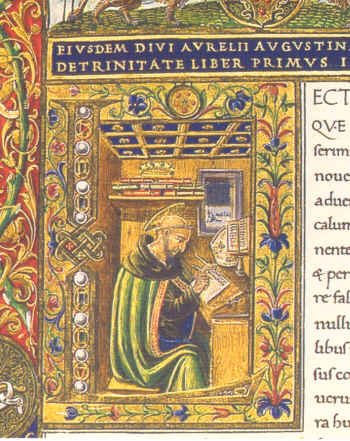 EIVSDEM DIVI AVRELII AVGVSTIN
DE TRINITATE LIBER PRIMVS I
LECT
QVE
serim
noue
adue
calum
nente
& per
re fal
nulli
libus
sus co
uerun
ra hu